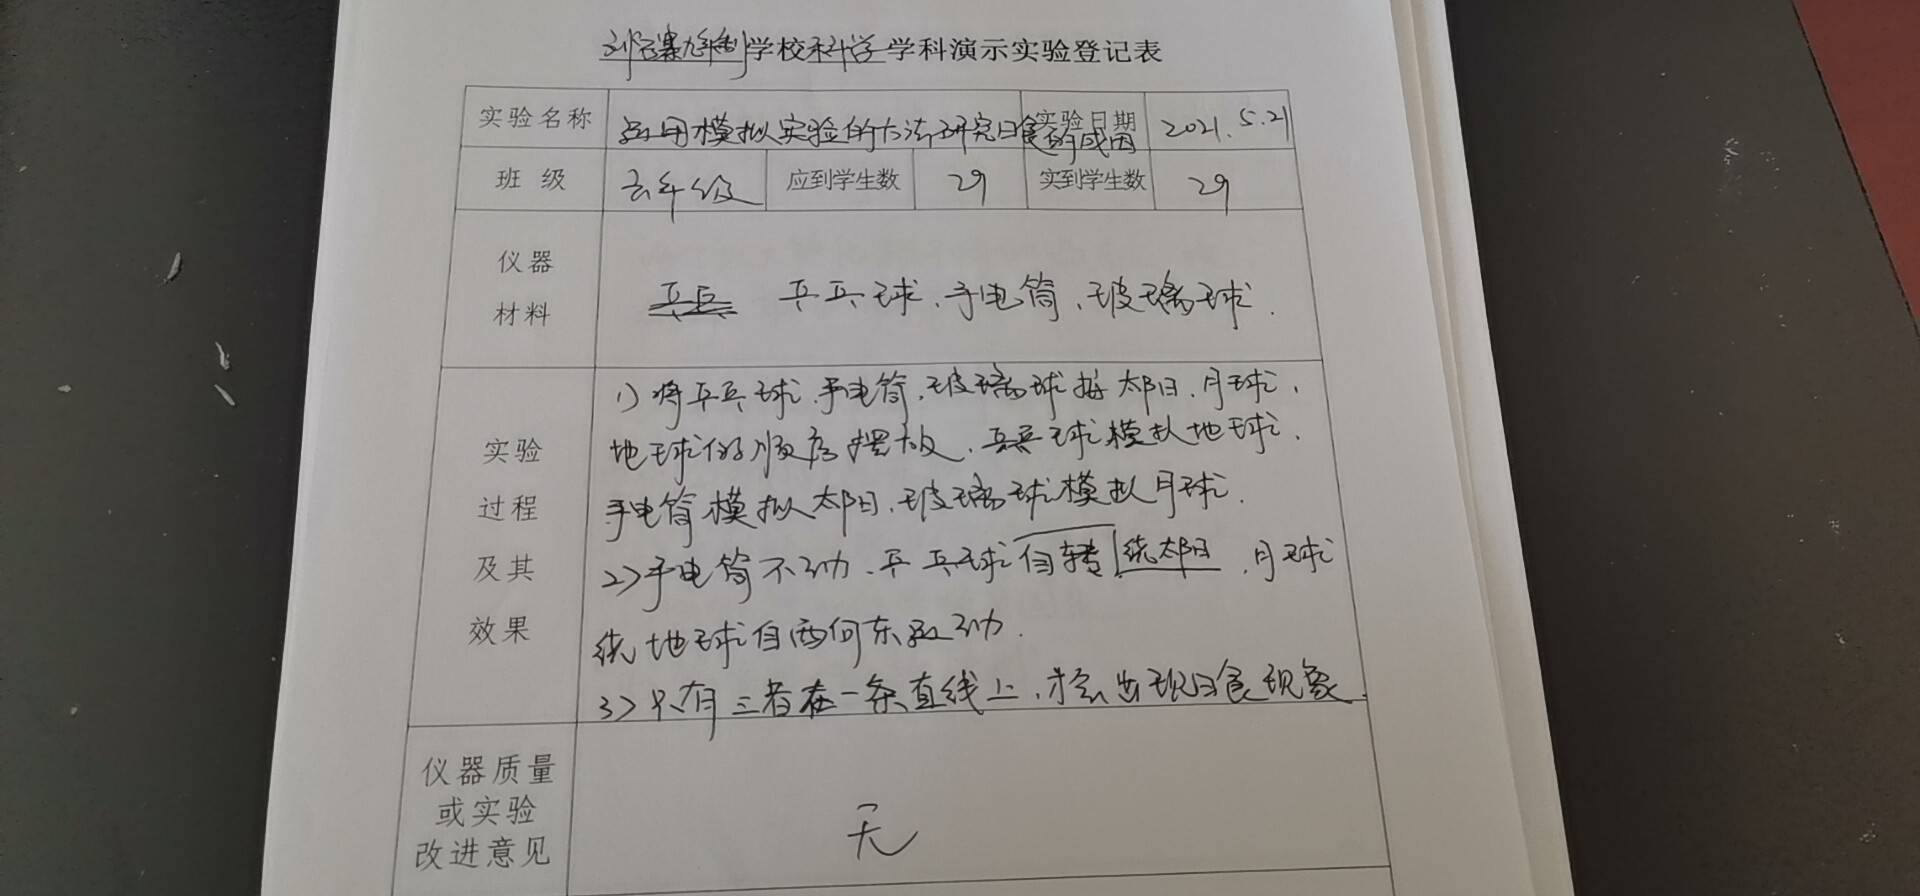 刘寨九年制学校科学学科演示实验登记表
实验名称 运用模拟实验的方法研究日食的成因 实验日期 2021.5.21
班级 六年级 应到学生数 29 实到学生数 29
仪器
材料
乒乓球、手电筒、玻璃球.
实验
过程
及其
效果
1) 将乒乓球、手电筒、玻璃球按太阳、月球、
地球的顺序摆放、乒乓球模拟地球、
手电筒模拟太阳、玻璃球模拟月球.
2>手电筒不动、乒乓球自转绕太阳、月球
绕地球自西向东运动.
3>只有三者在一条直线上、才会出现日食现象.
仪器质量
或实验
改进意见
无